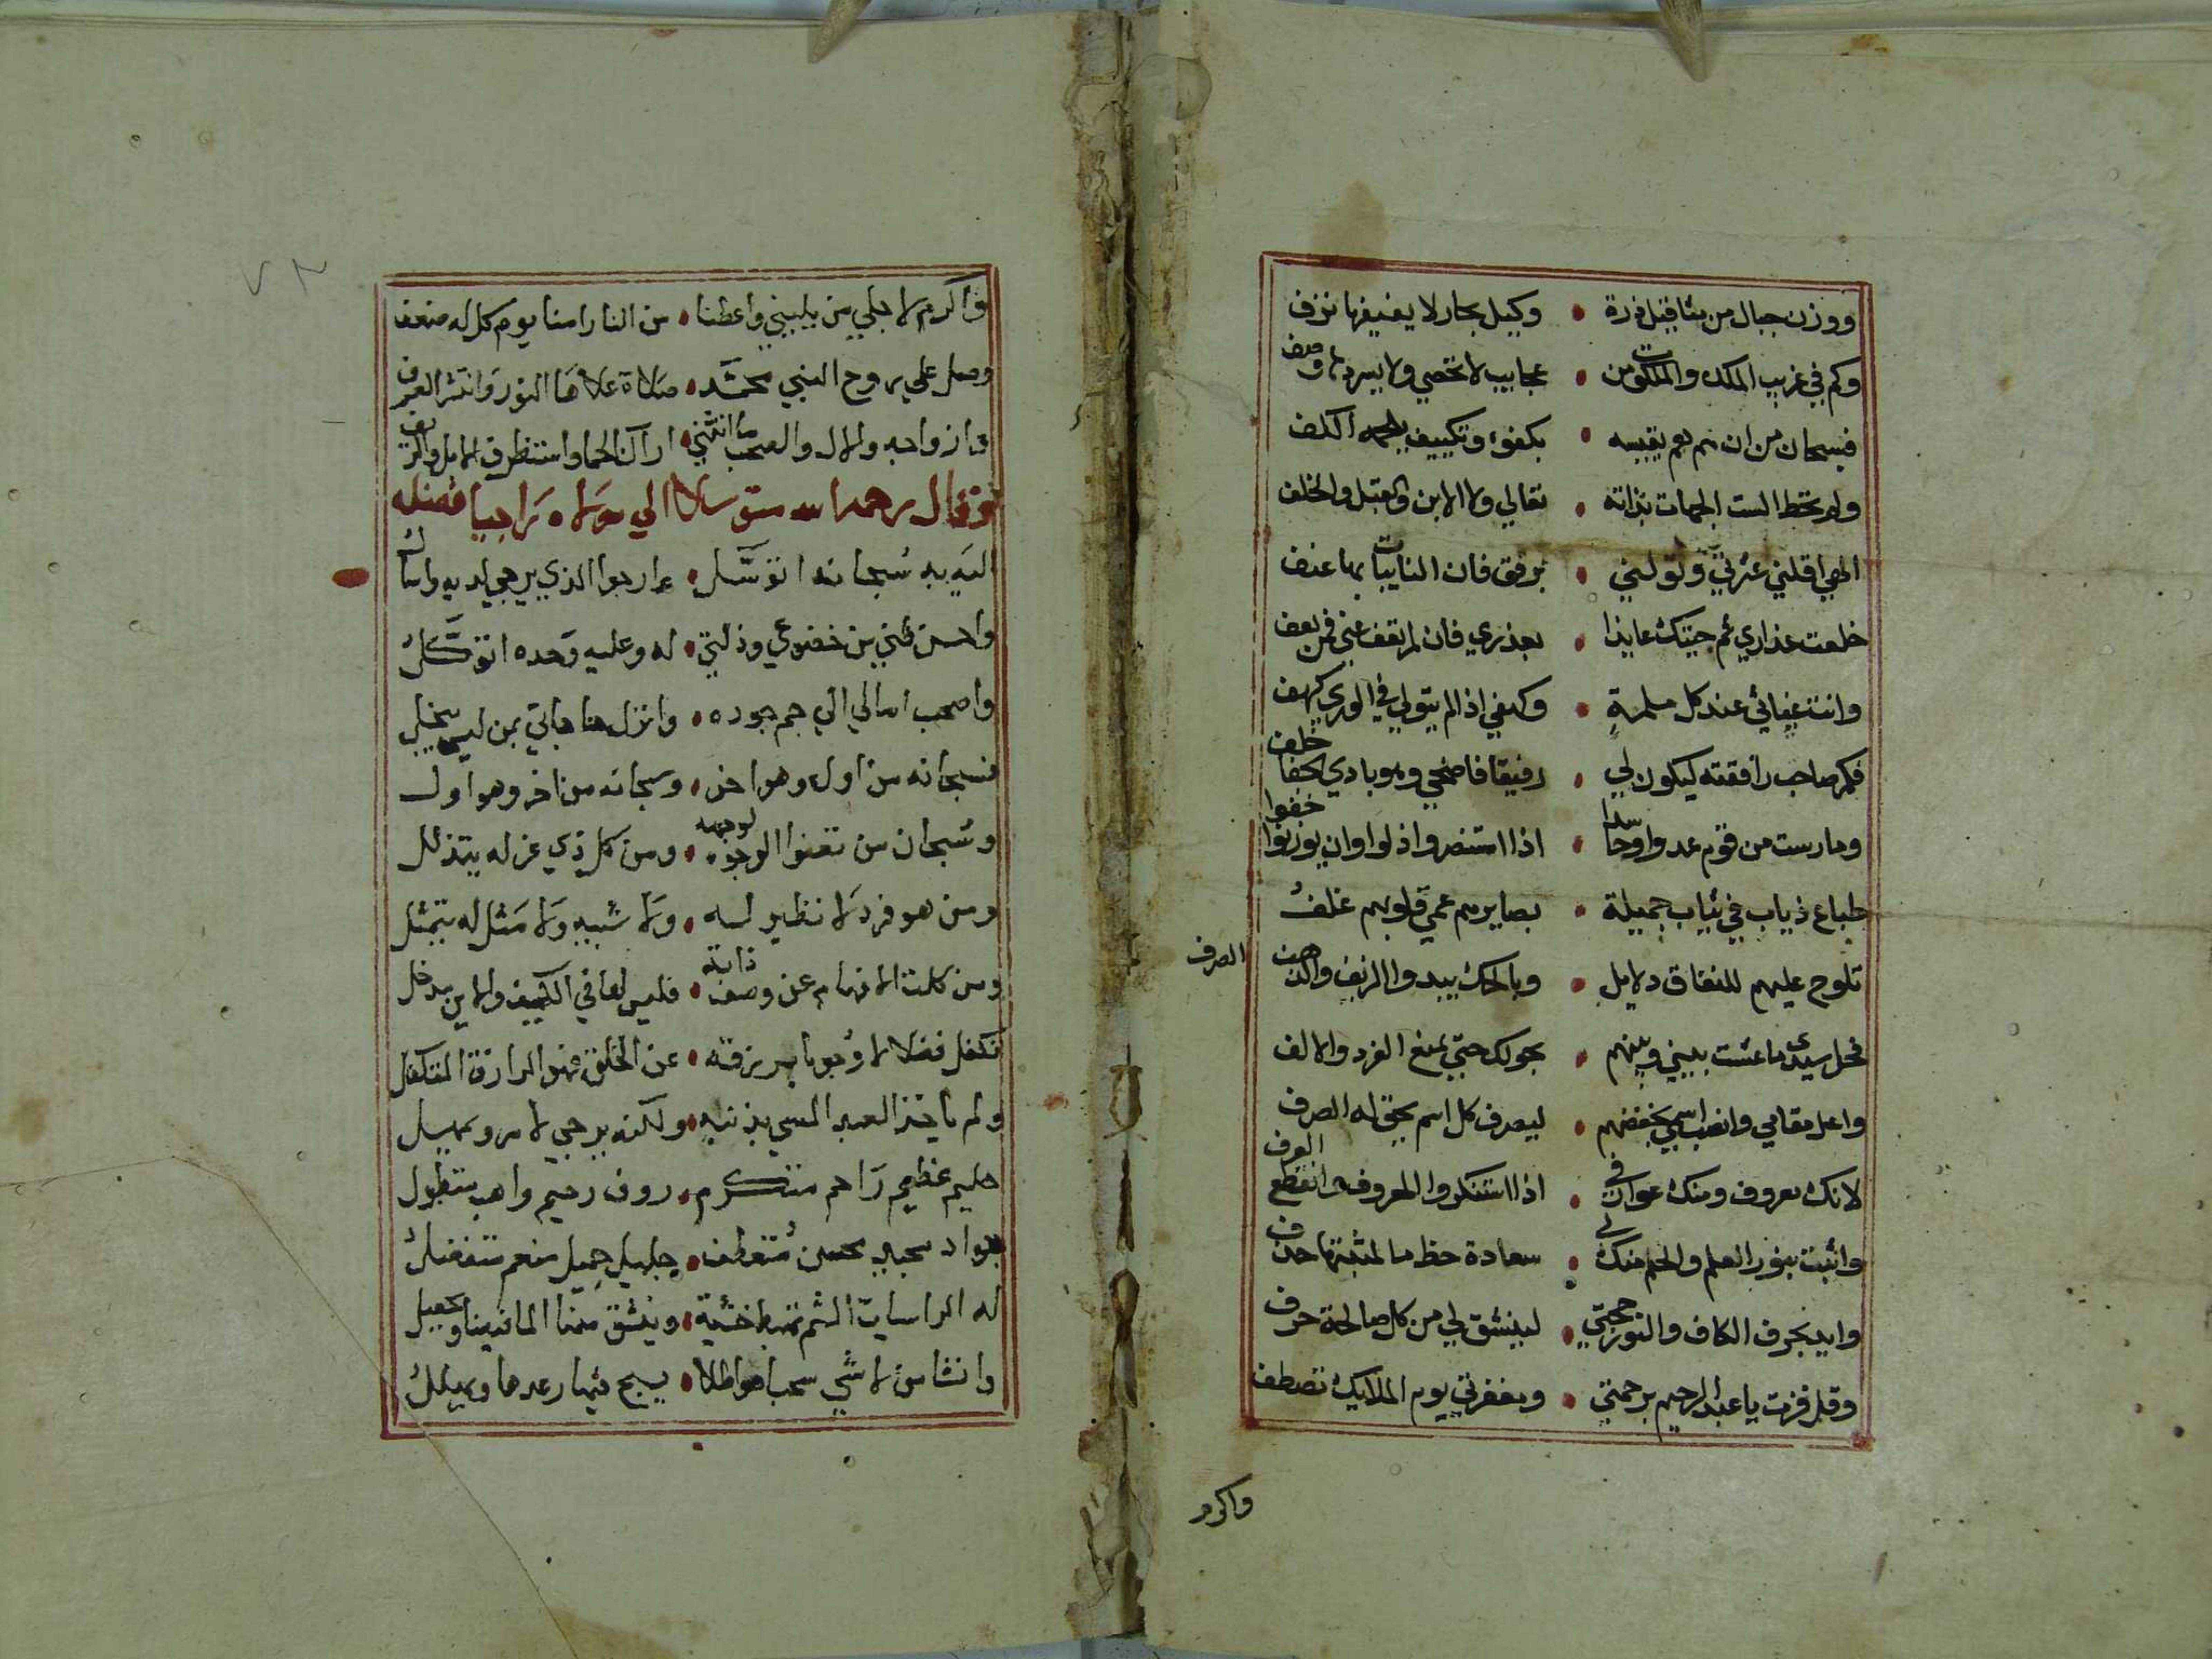 ووزن جبال من مثاقيل ذرة • وكيل بحار لا يغيضها نزف
وكم في غريب الملك والملكوت من • عجايب لا تحصي ولا يسردها وصف
فسبحان من ان هم وهم يقيسه • بكفوء وتكييف يلجمه الكف
ولم تحط الست الجهات بذاته • تعالي ولا الاين والقبل والخلف
الهي اقلني عثرتي وتولني • برفق فان النايبات بها عنف
خلعت عذاري ثم جيتك عايذا • بعذري فان لم تعف عني فمن يعف
وانت غياثي عند كل ملمة • وكهفي اذا لم يتولي في الوري كهف
فكم صاحب رافقته ليكون لي • رفيقا فاضحي وهو بادي الجفا خلف
ومارست من قوم عدوا وحاسدا • اذا استنصروا ذلوا وان يوزنوا خفوا
طباع ذياب في ثياب جميلة • بصايرهم عمي قلوبهم غلف
تلوح عليهم للنفاق دلايل • وبالحك يبدو الزيف والذهب الصرف
فحل سيدي ما عشت بيني وبينهم • بحولك حتي يمنع الفرد والالف
واعل مقامي وانصب اسمي بخفضهم • ليصرف كل اسم يحق له الصرف
لانك معروف ومنك عوارفي • اذا استنكر المعروف وانقطع العرف
واثبت بنور العلم والحلم منك لي • سعادة حظ ما لمثبتها حذف
وايد بحرف الكاف والنون حجتي • لينشق لي من كل صالحة حرف
وقل فزت يا عبد الرحيم برحمتي • ومغفرتي يوم الملايك تصطف
واكرم
واكرم لاجلي من يليني واعطنا • من النار امنا يوم كل له ضعف
وصل علي روح النبي محمد • صلاة علاها النور وانتشر العرف
وازواجه والال والصحب ما انثني • اراك الحما واستنظرف الابل والريف
وقال رحمه الله متوسلا الي مولاه راجيا فضله
اليه به سبحانه اتوسل • وارجوا الذي يرجي لديه واسأل
واحسن ظني من خضوعي وذلتي • له وعليه وحده اتوكل
واصحب امالي الي جم جوده • وانزل حاجاتي بمن ليس يبخل
فسبحانه من اول وهو اخر • وسبحانه من اخر وهو اول
وسبحان من تعنوا الوجوه لوجهه • ومن كل ذي عز له يتذلل
ومن هو فرد لا نظير له • ولا شبيه ولا مثل له يتمثل
ومن كلت الافهام عن وصف ذاته • فليس لها في الكيف والاين مدخل
تكفل فضلا لا وجوبا برزقه • عن الخلق فهو الرازق المتكفل
ولم ياخذ العبد المسي بذنبه • ولكنه يرجي لامر ويمهل
حليم عظيم راحم متكرم • روف رحيم واهب متطول
جواد مجيد محسن متعطف • جليل جميل منعم متفضل
له الراسيات الشم تهبط خشية • وينشق منها الما
وانشا من لا شي سحبا هواطلا • يسبح فيها رعدها ويهلل